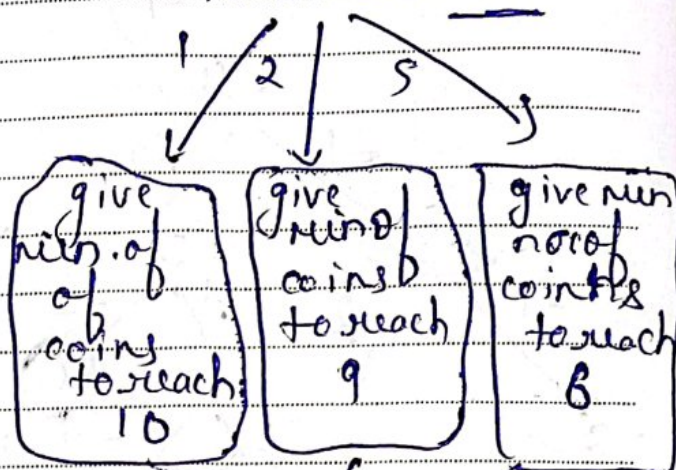 1 2 5
give
min. of
of
coins
to reach
10
give
min of
coins
to reach
9
give min
no of
coins
to reach
6